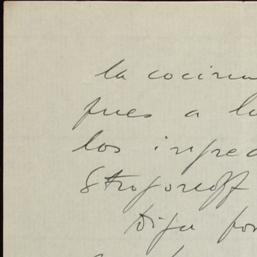 la cocina
pues a l
los ingred
Strogonoff
Diga por